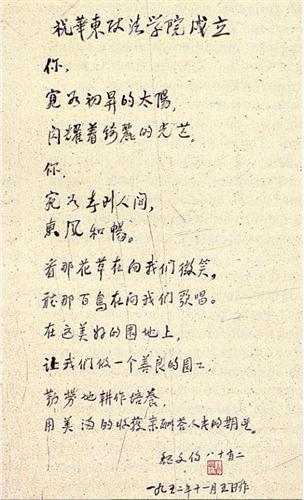 祝華東政法学院成立
你,
宛如初昇的太陽,
闪耀着綺麗的光芒。
你,
宛如春到人间,
東风和暢。
看那花草在向我们微笑。
聽那百鳥在向我们歌唱。
在这美好的园地上,
让我们做一个善良的园工,
勤勞地耕作培養,
用美满的收穫来酬答人民的期望。
魏文伯 八十有二
一九五二年十一月五日作